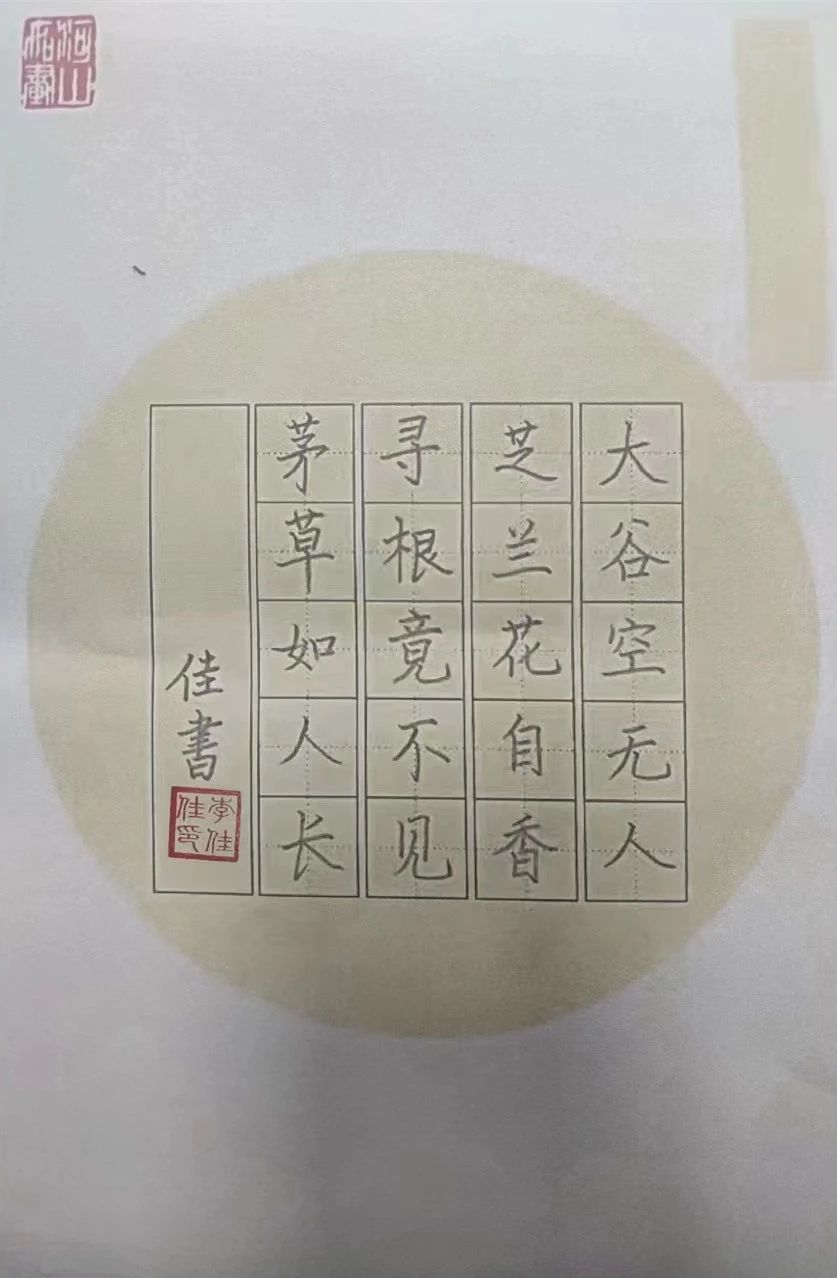 大谷空无人
芝兰花自香
寻根竟不见
茅草如人长
佳書
李佳
佳印
河山
如畫